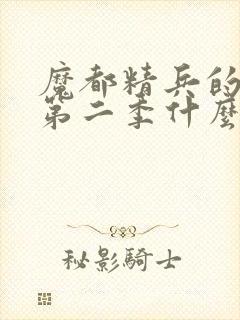 魔都精兵的
第二季什麼
秘影騎士